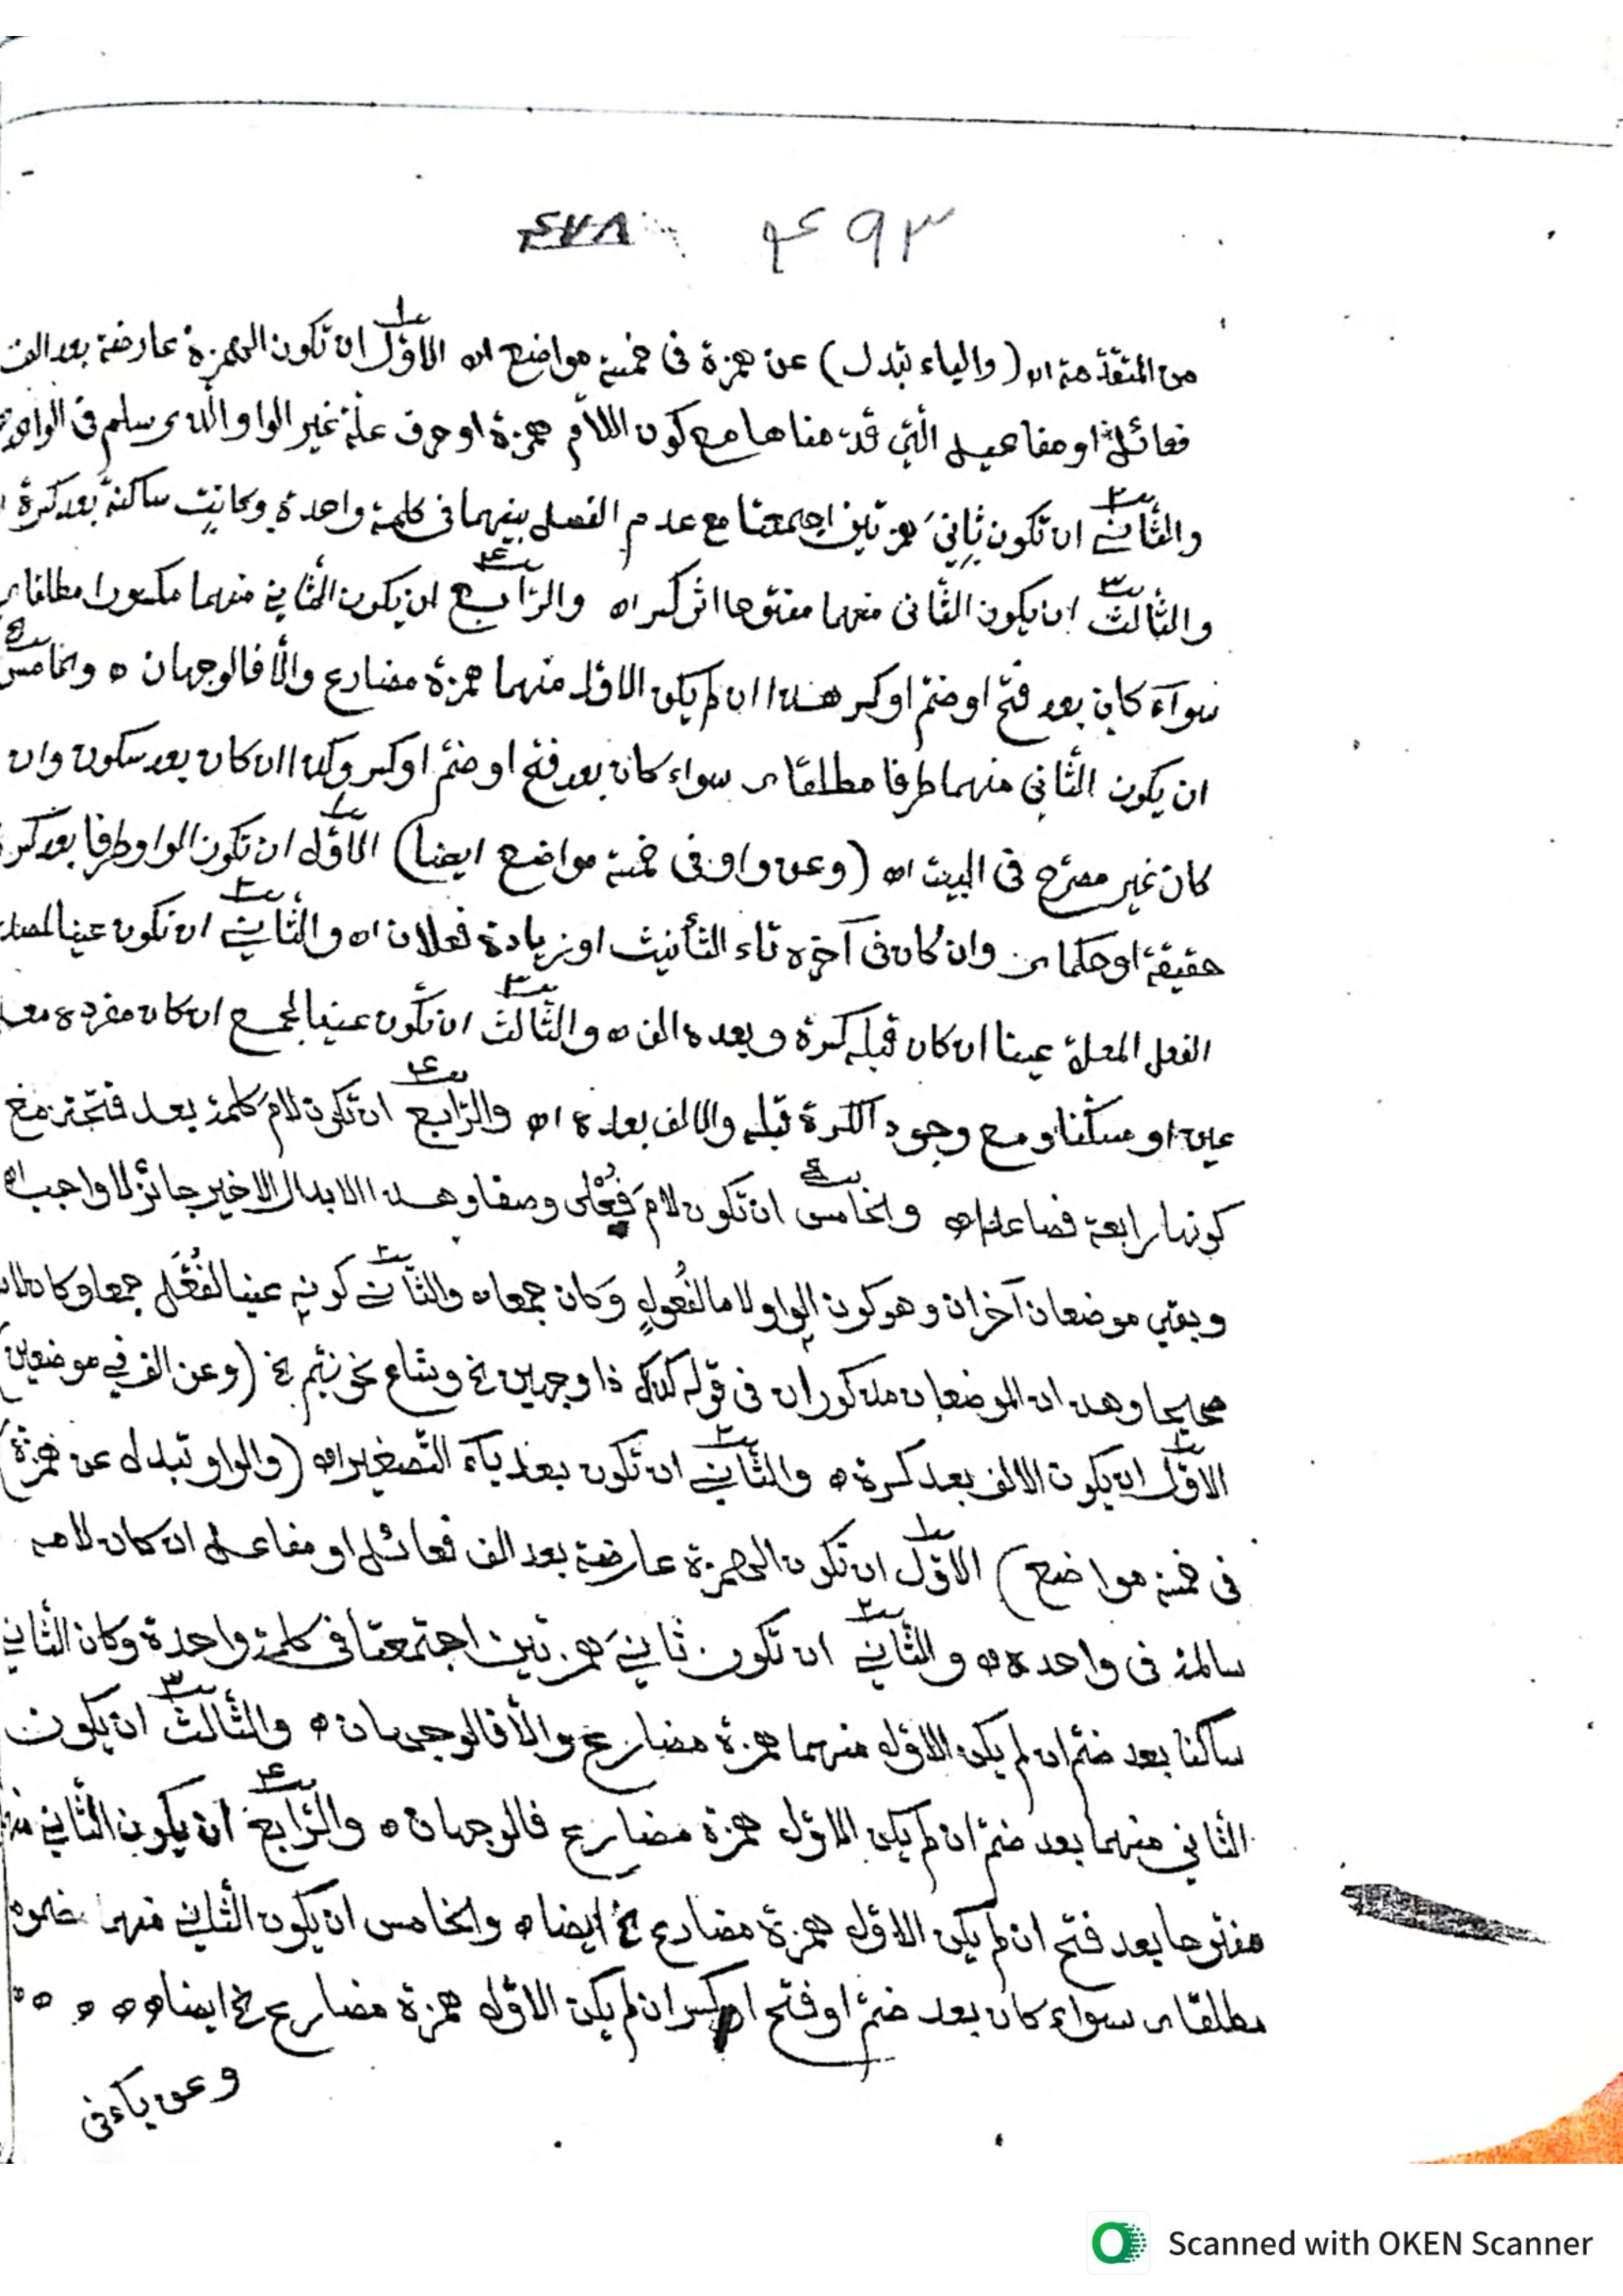 ٤٧٨ ۴۹۳
من المتقدّمة اه (والياء تبدل) عن همزة فى خمسة مواضع اه الاوّل ان تكون الهمزة عارضة بعد الف
فعائل او مفاعيل الّتي قدّمناها مع كون اللاّم همزة او حرف علّة غير الواو الّذى سلم فى الواحد
والثّانى ان تكون ثانيَ همزتين اجتمعتا مع عدم الفصل بينهما فى كلمة واحدة وكانت ساكنة بعد كسرة
والثّالث ان يكون الثّانى منهما مفتوحا اثر كسر اه والرّابع ان يكون الثّاني منهما مكسورا مطلقا اى
سوآء كان بعد فتح او ضمّ او كسر هذا ان لم يكن الاوّل منهما همزة مضارع والّا فالوجهان ه والخامس
ان يكون الثّاني منهما طرفا مطلقا اى سواء كان بعد فتح او ضمّ او كسر وكذا ان كان بعد سكون وان
كان غير مصرّح فى البيت اه (وعن واو فى خمسة مواضع ايضا) الاوّل ان تكون الواو طرفا بعد كسرة
حقيقة او حكما وان كان فى آخره تاء التّأنيث او زيادة فعلان اه والثّانى ان تكون عينا لمصدر
الفعل المعلّ عينا ان كان قبله كسرة وبعده الف ه والثّالث ان تكون عينا لجمع ان كان مفرده معلّ
عين او مسكّنا ومع وجود الكسرة قبله والالف بعده اه والرّابع ان تكون لامَ كلمة بعد فتحة مع
كونها رابعة فصاعدا ه والخامس ان تكون لامَ فُعْلى وصفا وهذا الابدال الاخير جائز لا واجب اه
وبقي موضعان آخران وهو كون الواو لاما لفُعولٍ وكان جمعا ه والثّانى كونه عينا لفُعَّل جمعا وكان لامه
صحيحا وهذان الموضعان مذكوران فى قوله كذاك ذا وجهين الخ وشاع نحو نيّم الخ (وعن الف في موضعين)
الاوّل ان يكون الالف بعد كسرة ه والثّانى ان تكون بعد يآء التّصغير اه (والواو تبدل عن همزة)
فى خمسة مواضع) الاوّل ان تكون الهمزة عارضة بعد الف فعائل او مفاعل ان كان لامه
سالمة فى واحده ه والثّاني ان تكون ثانيَ همزتين اجتمعتا فى كلمة واحدة وكان الثّاني
ساكنا بعد ضمّ ان لم يكن الاوّل منهما همزة مضارع والّا فالوجهان ه والثّالث ان يكون
الثّاني منهما بعد ضمّ ان لم يكن الاوّل همزة مضارع فالوجهان ه والرّابع ان يكون الثّاني
مفتوحا بعد فتح ان لم يكن الاوّل همزة مضارع الخ ايضا ه والخامس ان يكون الثّاني منهما مضموما
مطلقا اى سواء كان بعد ضمّ او فتح او كسر ان لم يكن الاوّل همزة مضارع الخ ايضا ه ه ه ه
وعن ياء فى
Scanned with OKEN Scanner